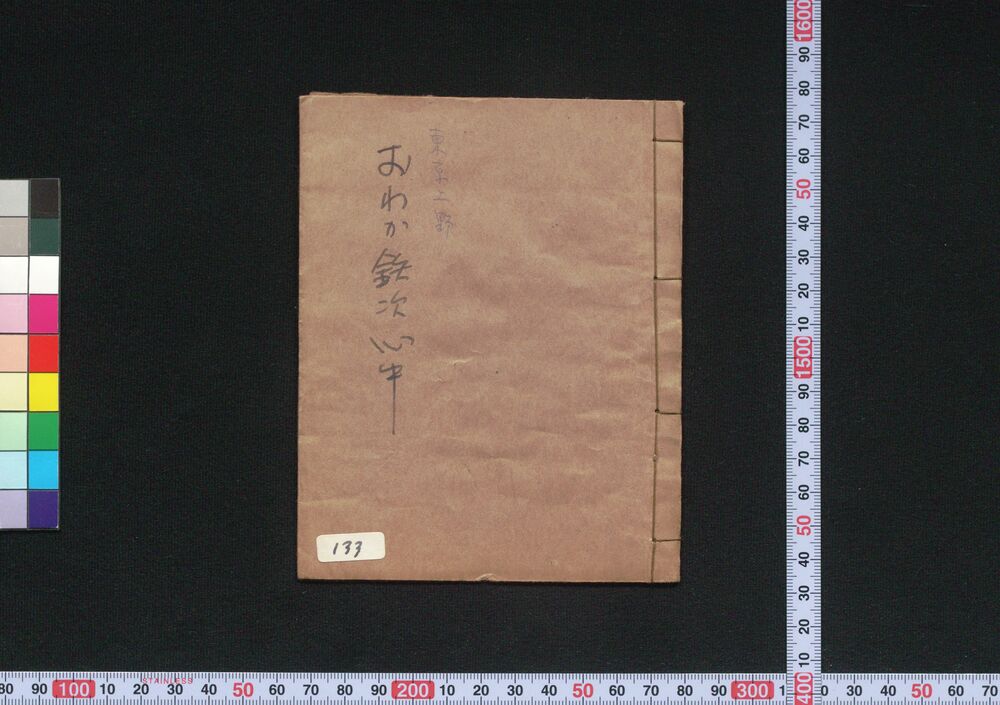 東京上野
おわか鉄次心中
133
STAINLESS
80 90 100 10 20 30 40 50 60 70 80 90 200 10 20 30 40 50 60 70 80 90 300 1
0 30 40 50 60 70
1600
90
80
70
60
50
40
30
20
10
1500
90
80
70
60
50
40
30
20
10
400